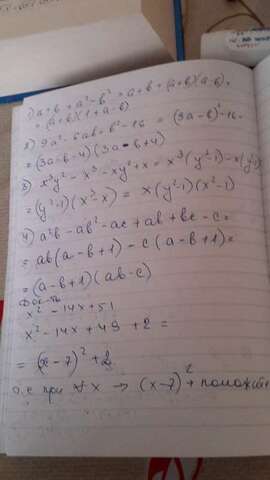 1) a+b+a²-b² = a+b+(a+b)(a-b)=
= (a+b)(1+a-b)
2) 9a²-6ab+b²-16 = (3a-b)²-16=
= (3a-b-4)(3a-b+4)
3) x³y²-x³-xy²+x = x³(y²-1)-x(y²-1)
= (y²-1)(x³-x) = x(y²-1)(x²-1)
4) a²b-ab²-ac+ab+bc-c=
= ab(a-b+1)-c(a-b+1)=
= (a-b+1)(ab-c)
Док-ть
x²-14x+51
x²-14x+49+2=
= (x-7)²+2
т.е при ∀ x → (x-7)²+